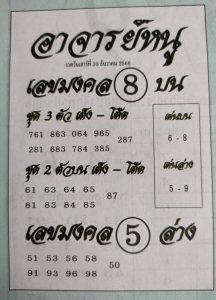 อาจารย์หนู
งวดวันเสาร์ที่ 30 ธันวาคม 2566
เลขมงคล 8 บน
ชุด 3 ตัว เต็ง - โต๊ด
761 863 064 965
287
281 683 784 385
เด่นบน
6 - 8
ชุด 2 ตัวบน เต็ง - โต๊ด
61 63 64 65
87
81 83 84 85
เด่นล่าง
5 - 9
เลขมงคล 5 ล่าง
51 53 56 58
50
91 93 96 98